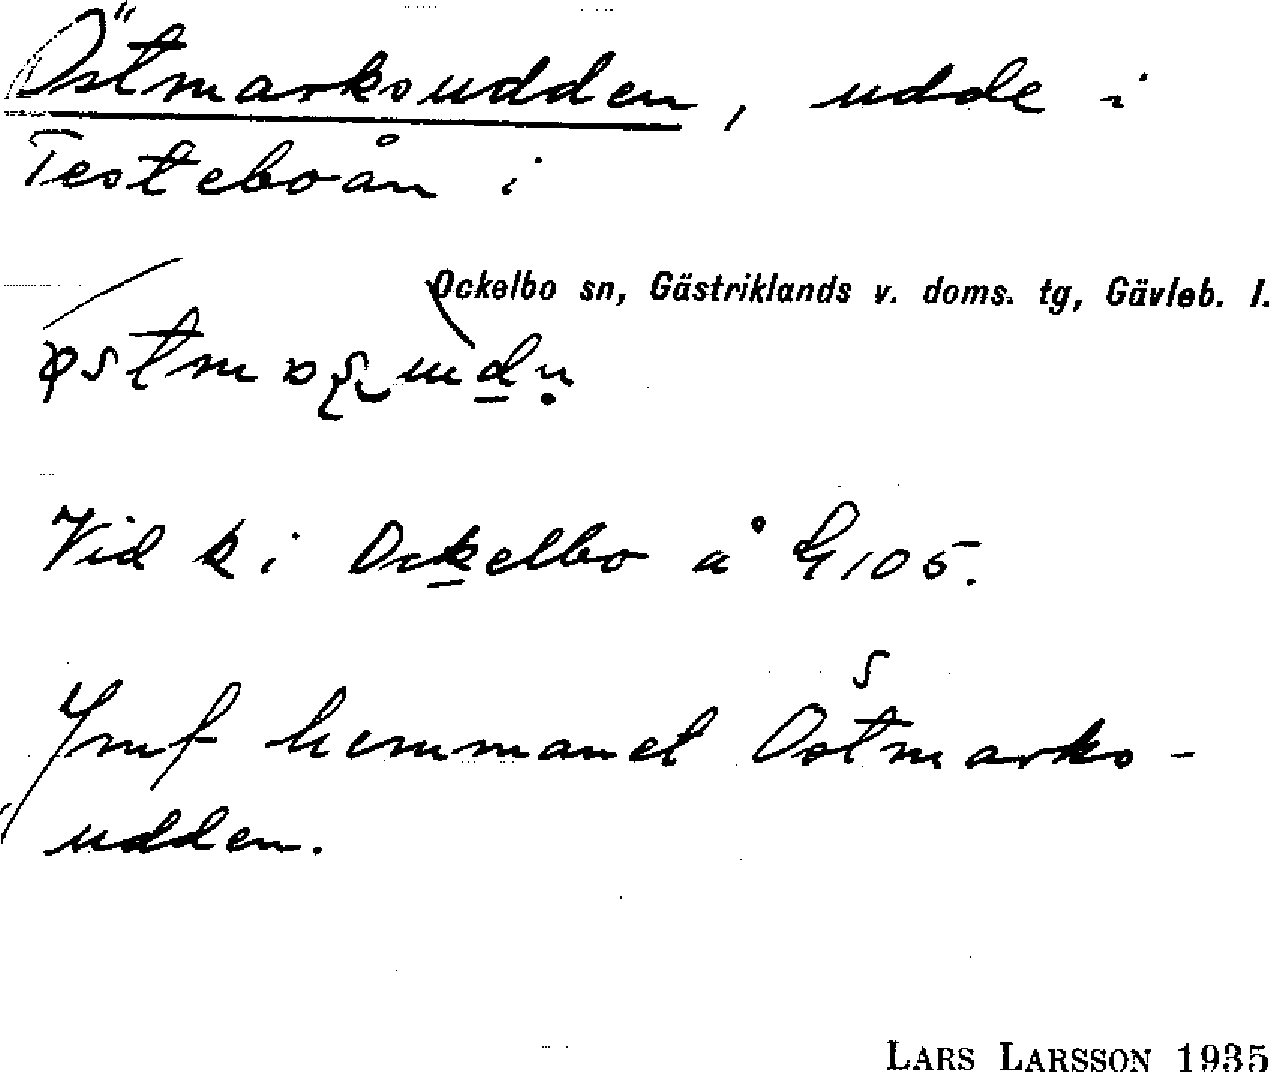 Östmarksudden, udde i
Testeboån i
Ockelbo sn, Gästriklands v. doms. tg, Gävleb. l.
Vid k i Ockelbo å G 105.
Jmf hemmanet Östmarks-
udden.
LARS LARSSON 1935